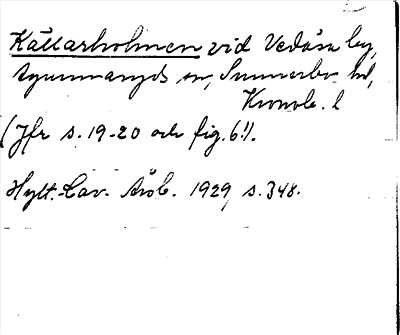 Källarholmen vid Vedåsa by,
Agunnaryds sn, Sunnerbo hd,
Kronob. l
(Jfr s. 19-20 och fig. 6!).
Hylt.-Cav. Årsb. 1929, s. 348.